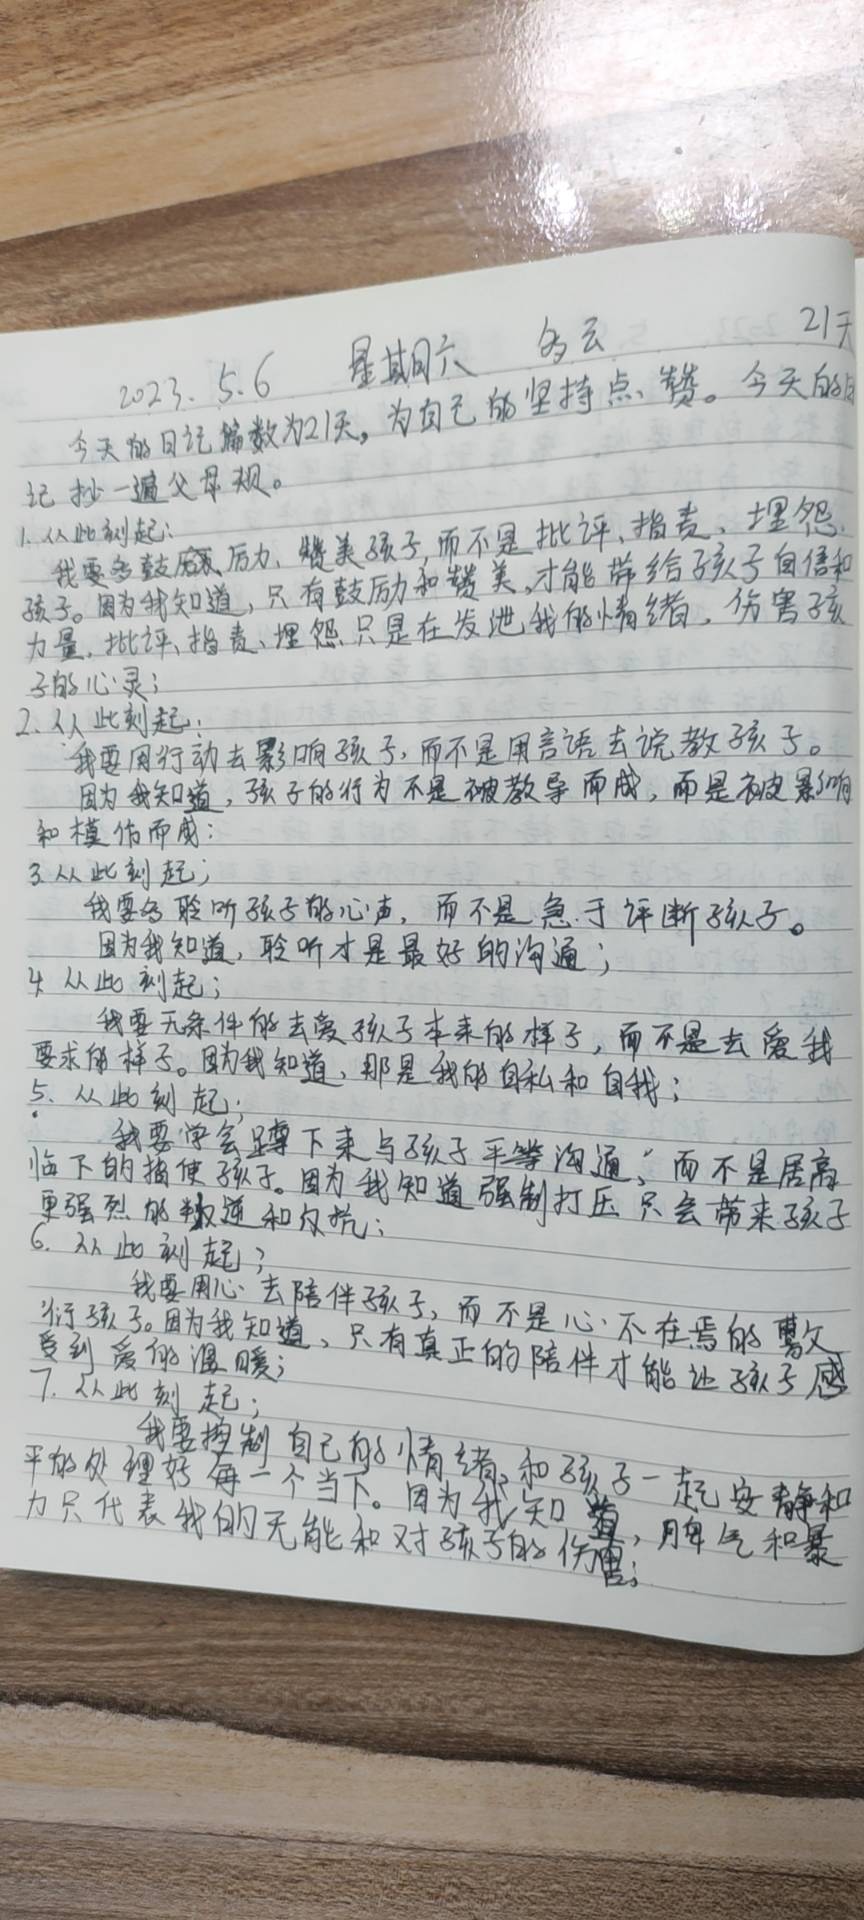 2023. 5.6 星期六 多云 21天
今天的日记篇数为21天，为自己的坚持点赞。今天的日
记抄一遍父母规。
1. 从此刻起：
我要多鼓励、赞美孩子，而不是批评、指责、埋怨
孩子。因为我知道，只有鼓励和赞美，才能带给孩子自信和
力量，批评、指责、埋怨只是在发泄我的情绪，伤害孩
子的心灵；
2. 从此刻起：
我要用行动去影响孩子，而不是用言语去说教孩子。
因为我知道，孩子的行为不是被教导而成，而是被影响
和模仿而成：
3. 从此刻起；
我要多聆听孩子的心声，而不是急于评断孩子。
因为我知道，聆听才是最好的沟通；
4. 从此刻起；
我要无条件的去爱孩子本来的样子，而不是去爱我
要求的样子。因为我知道，那是我的自私和自我；
5. 从此刻起；
我要学会蹲下来与孩子平等沟通，而不是居高
临下的指使孩子。因为我知道强制打压只会带来孩子
更强烈的叛逆和反抗；
6. 从此刻起；
我要用心去陪伴孩子，而不是心不在焉的敷
衍孩子。因为我知道，只有真正的陪伴才能让孩子感
受到爱的温暖；
7. 从此刻起；
我要控制自己的情绪，和孩子一起安静和
平的处理好每一个当下。因为我知道，脾气和暴
力只代表我的无能和对孩子的伤害；